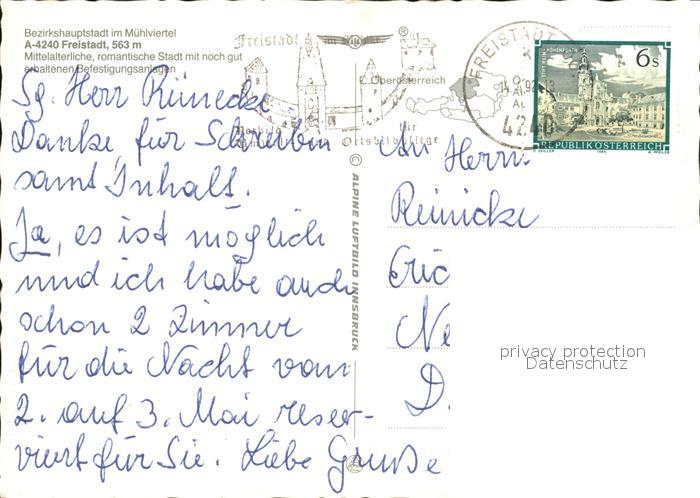 Bezirkshauptstadt im Mühlviertel
A-4240 Freistadt, 563 m
Mittelalterliche, romantische Stadt mit noch gut
erhaltenen Befestigungsanlagen
Sg. Herr Reinecke
Danke für Schreiben
samt Inhalt.
Ja, es ist möglich
und ich habe auch
schon 2 Zimmer
für die Nacht vom
2. auf 3. Mai reser-
viert für Sie. Liebe Grüße
© ALPINE LUFTBILD INNSBRUCK
Freistadt
Oberösterreich
für
Ortsbildpflege
FREISTADT
4240
6s
REPUBLIK ÖSTERREICH
An Herrn
Reinicke
Eric
Ne
D.
privacy protection
Datenschutz